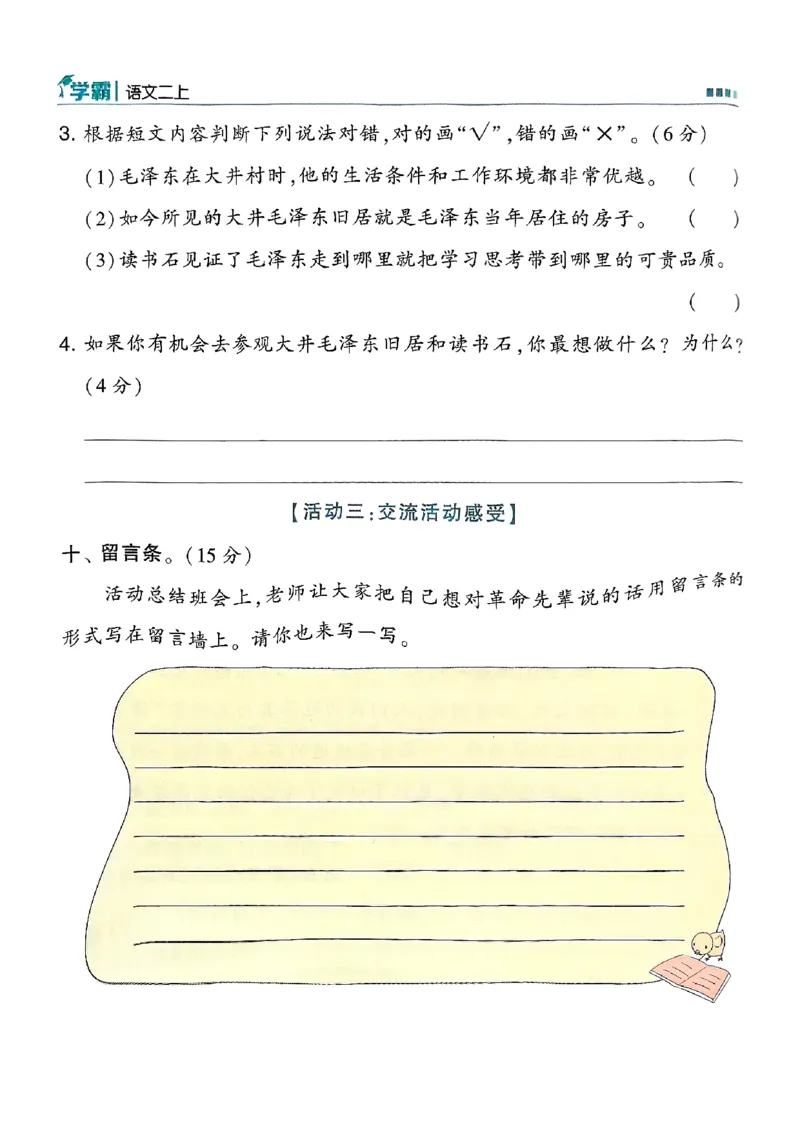 学霸 语文二上
3. 根据短文内容判断下列说法对错,对的画“√”,错的画“×”。(6分)
(1)毛泽东在大井村时,他的生活条件和工作环境都非常优越。 ( )
(2)如今所见的大井毛泽东旧居就是毛泽东当年居住的房子。 ( )
(3)读书石见证了毛泽东走到哪里就把学习思考带到哪里的可贵品质。
( )
4. 如果你有机会去参观大井毛泽东旧居和读书石,你最想做什么?为什么?
(4分)
【活动三:交流活动感受】
十、留言条。(15分)
活动总结班会上,老师让大家把自己想对革命先辈说的话用留言条的
形式写在留言墙上。请你也来写一写。